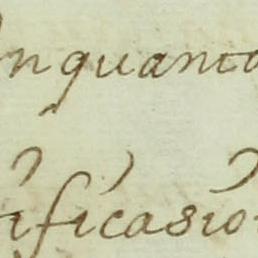 inquanto
ificasio